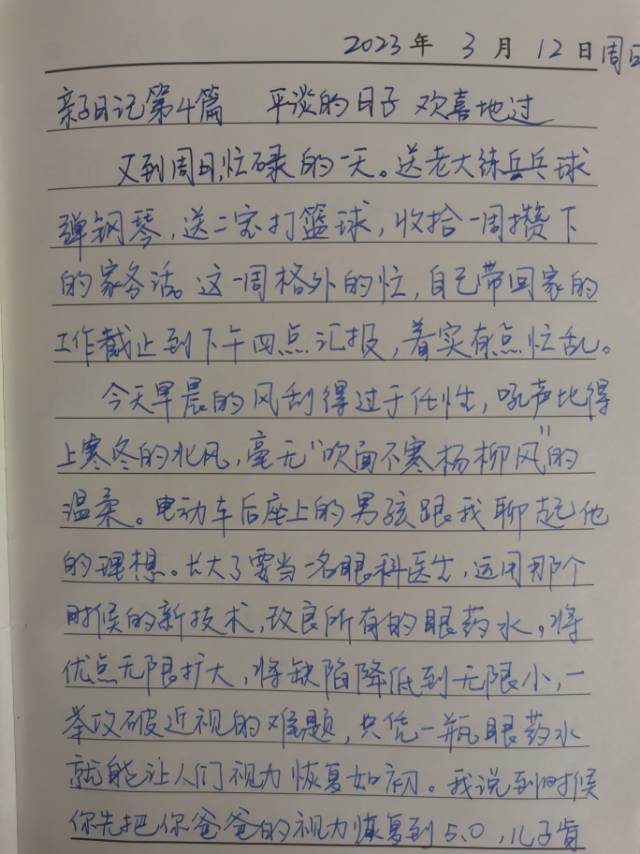 2023年 3月 12日周日
亲子日记第4篇 平淡的日子 欢喜地过
又到周日,忙碌的一天。送老大练乒乓球
弹钢琴,送二宝打篮球,收拾一周攒下
的家务活。这一周格外的忙,自己带回家的
工作截止到下午四点汇报,着实有点忙乱。
今天早晨的风刮得过于任性,吼声比得
上寒冬的北风,毫无“吹面不寒杨柳风”的
温柔。电动车后座上的男孩跟我聊起他
的理想。长大了要当一名眼科医生,运用那个
时候的新技术,改良所有的眼药水。将
优点无限扩大,将缺陷降低到无限小,一
举攻破近视的难题,只凭一瓶眼药水
就能让人们视力恢复如初。我说到时候
你先把你爸爸的视力恢复到5.0,儿子肯